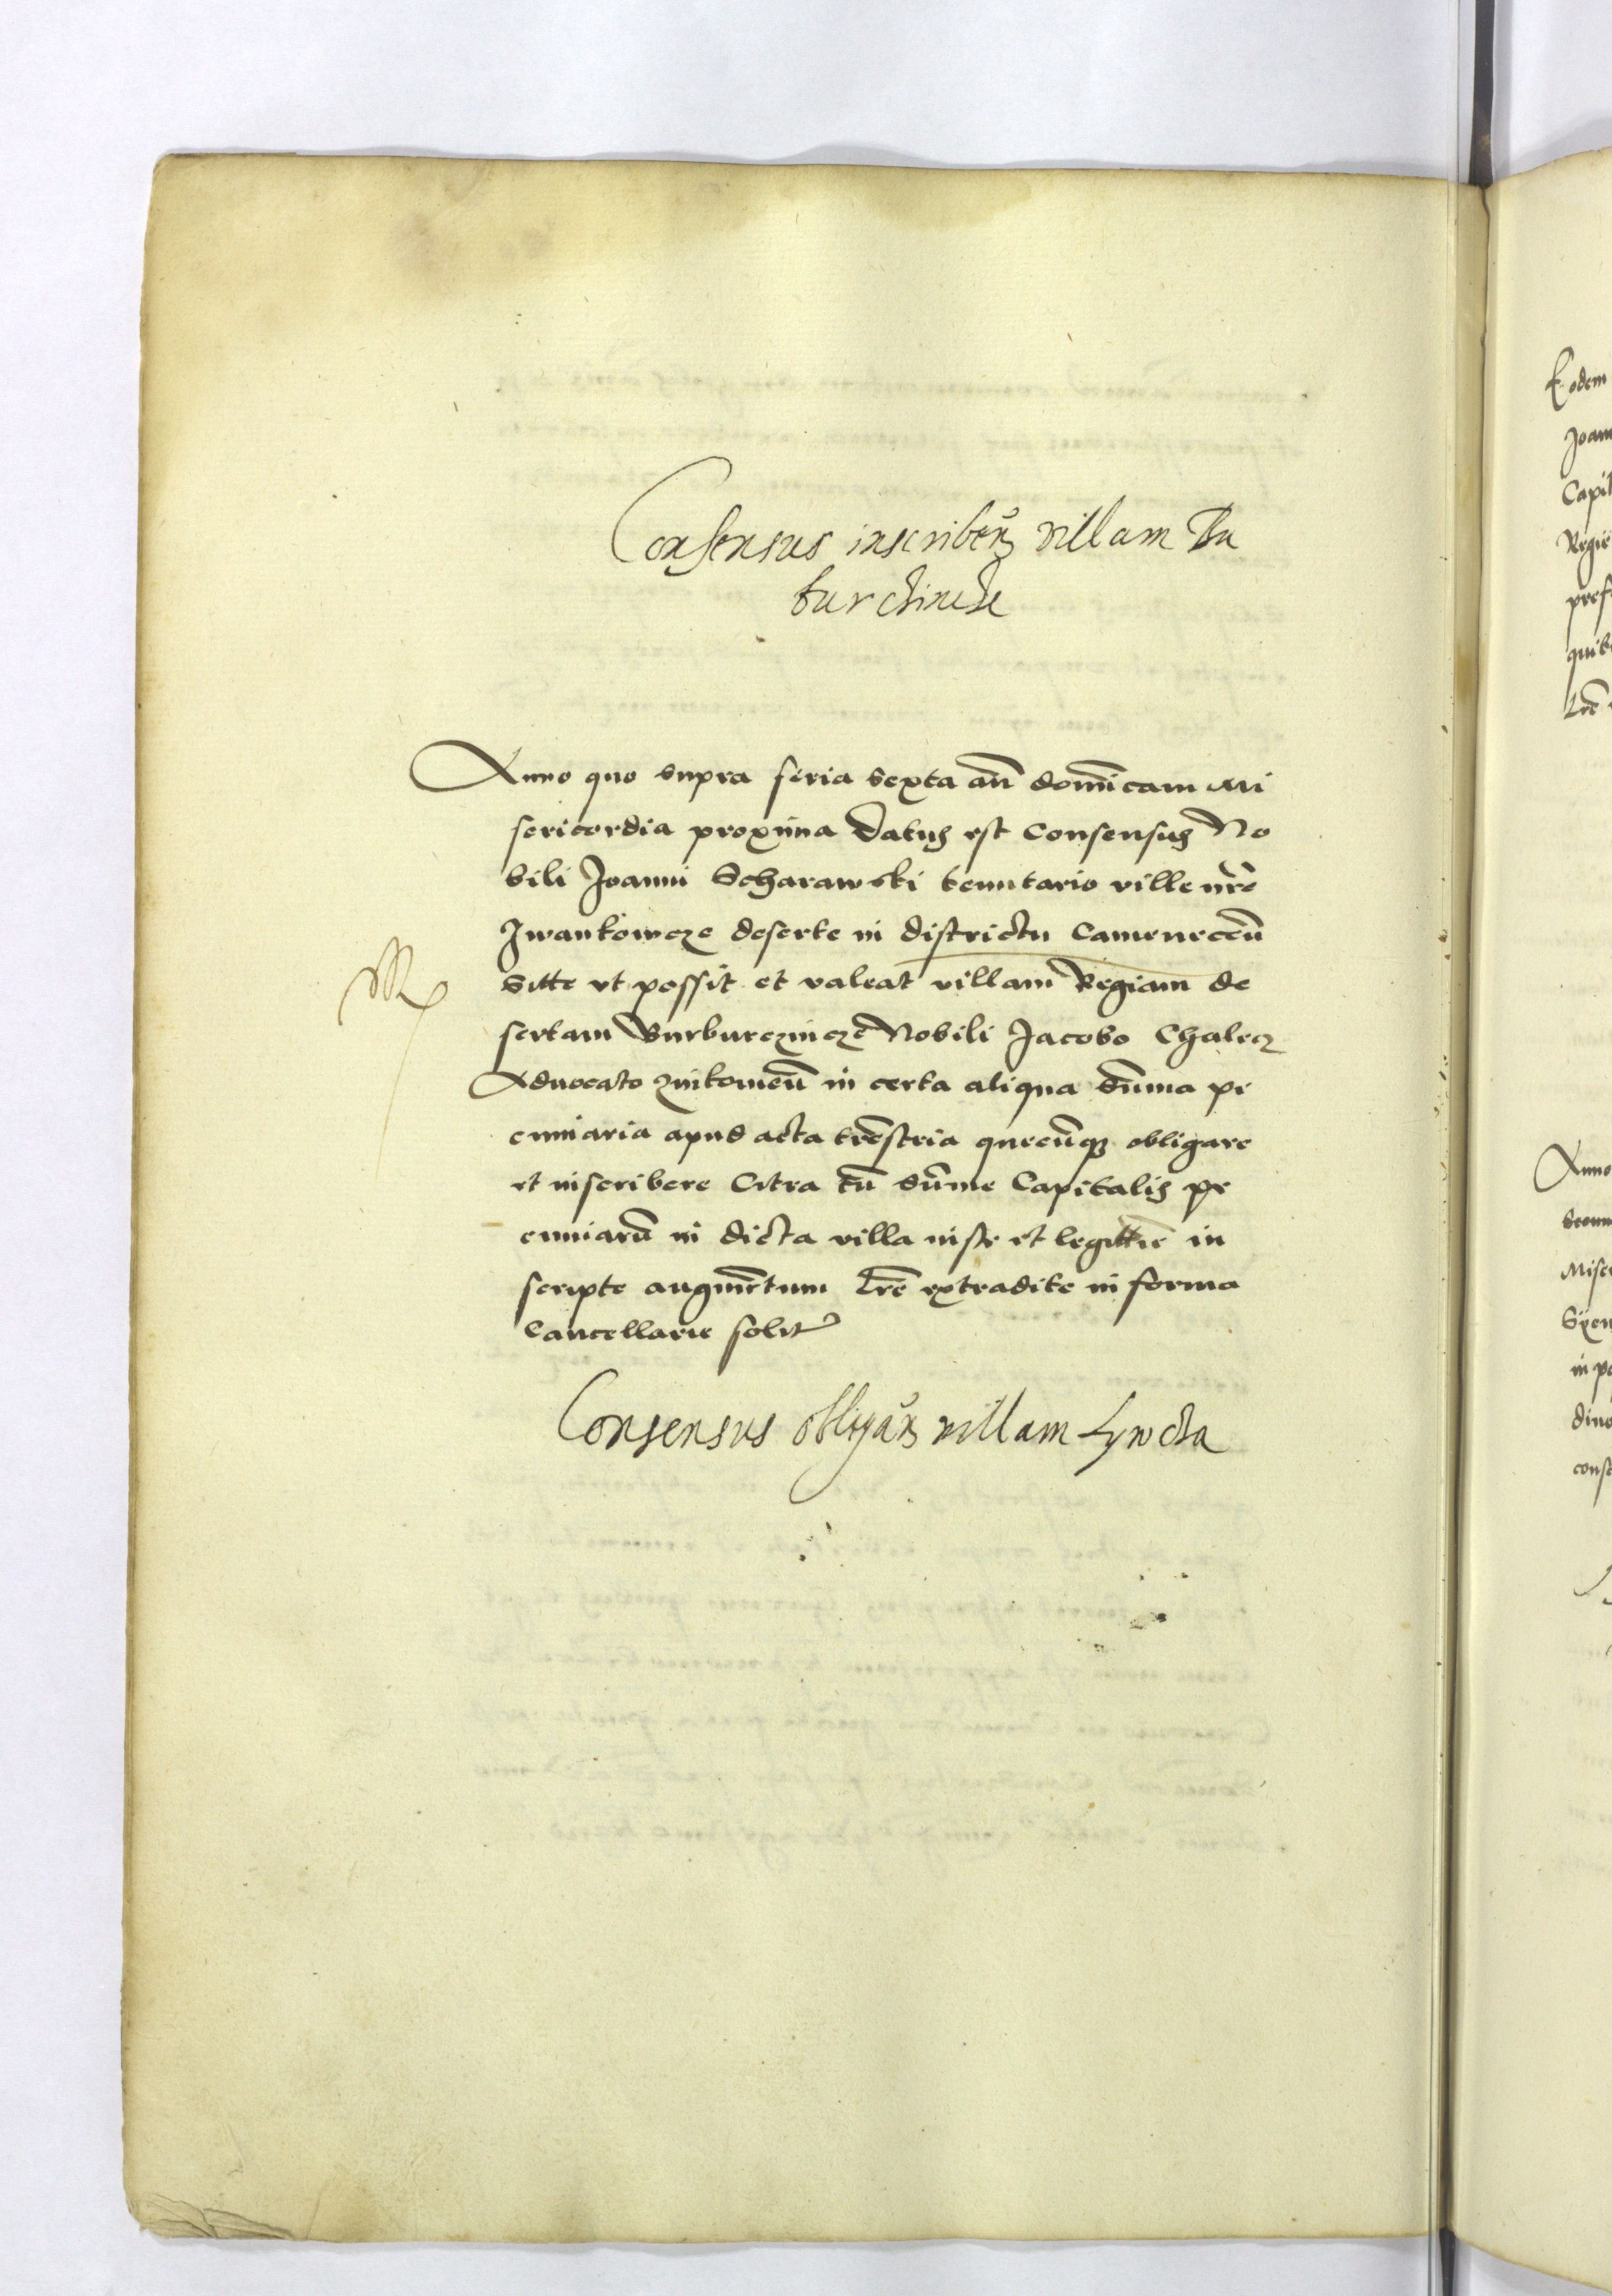 Consensus inscribeñ villam Bu
burchincze
Anno quo supra feria sexta añ domĩcam Mi
sericordia proxima Datus est Consensus No
bili Joanni Scharawski tenutario ville nr̃e
Iwankowcze deserte in districtu Camenecen̄
Sitte vt possit et valeat villam Regiam de
sertam Burburczincze Nobili Jacobo Chalecz
Advocato zinkowen̄ in certa aliqua sum̄a pe
cuniaria apud acta trēstria quecūqꝫ obligare
et inscribere Citra tn̄ sum̄e Capitalis pe
cuniarū in dicta villa iuste et legittīe in
scripte augmētum Lr̃e extradite in forma
Cancellarie solit
Consensus obligañ villam
Eodem
Joann
Capit
Regie
pref
quib
Lr̃e
Anno
Miser
in po
dino
conse